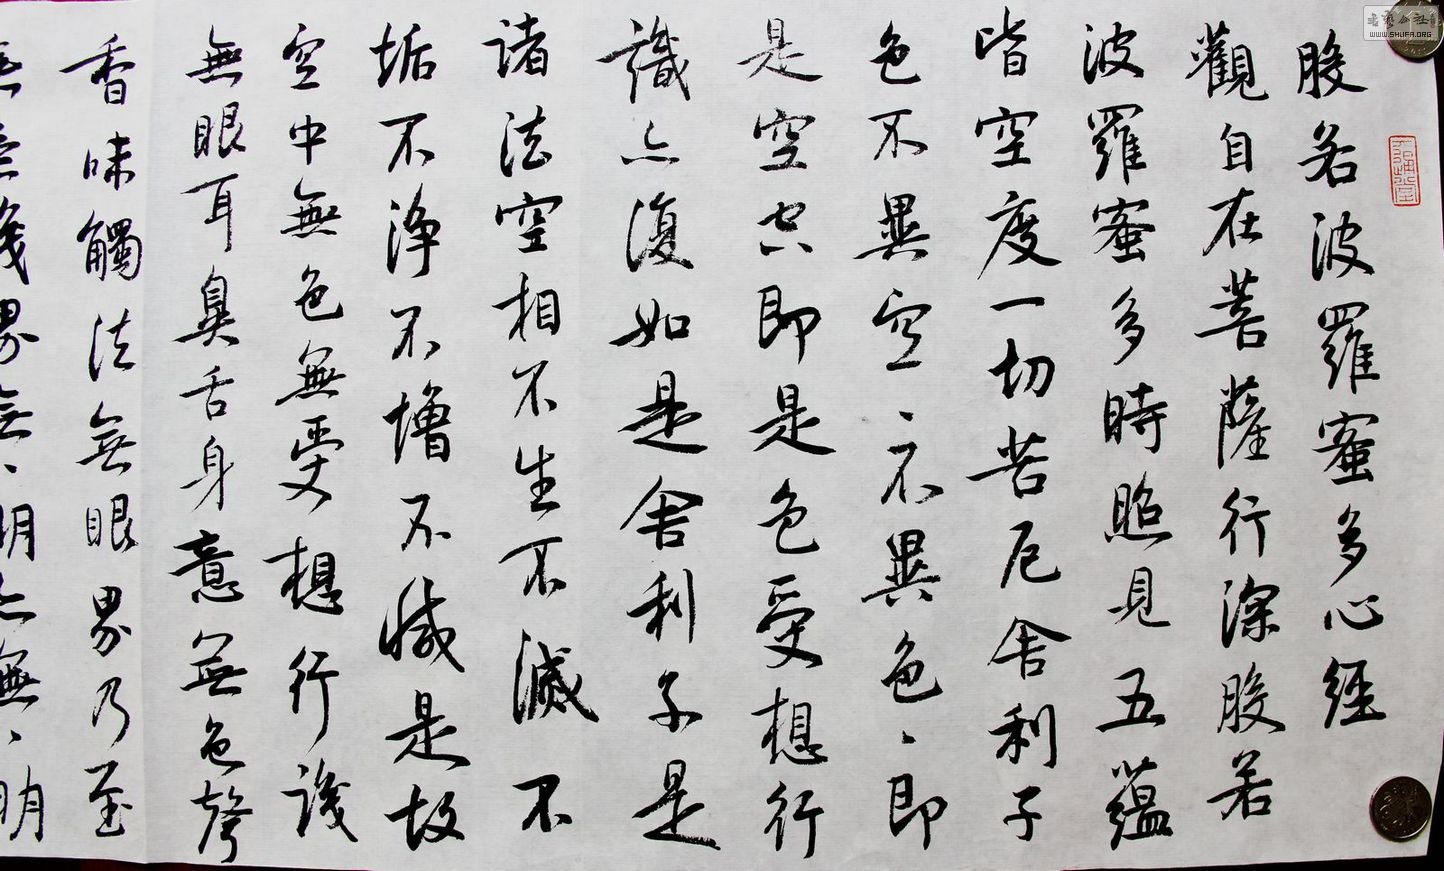 般若波羅蜜多心經
觀自在菩薩行深般若
波羅蜜多時照見五蘊
皆空度一切苦厄舍利子
色不異空、不異色、即
是空空即是色受想行
識亦復如是舍利子是
諸法空相不生不滅不
垢不淨不增不減是故
空中無色無受想行識
無眼耳鼻舌身意無色聲
香味觸法無眼界乃至
無意識界無、明亦無、明
WWW.SHUFA.ORG